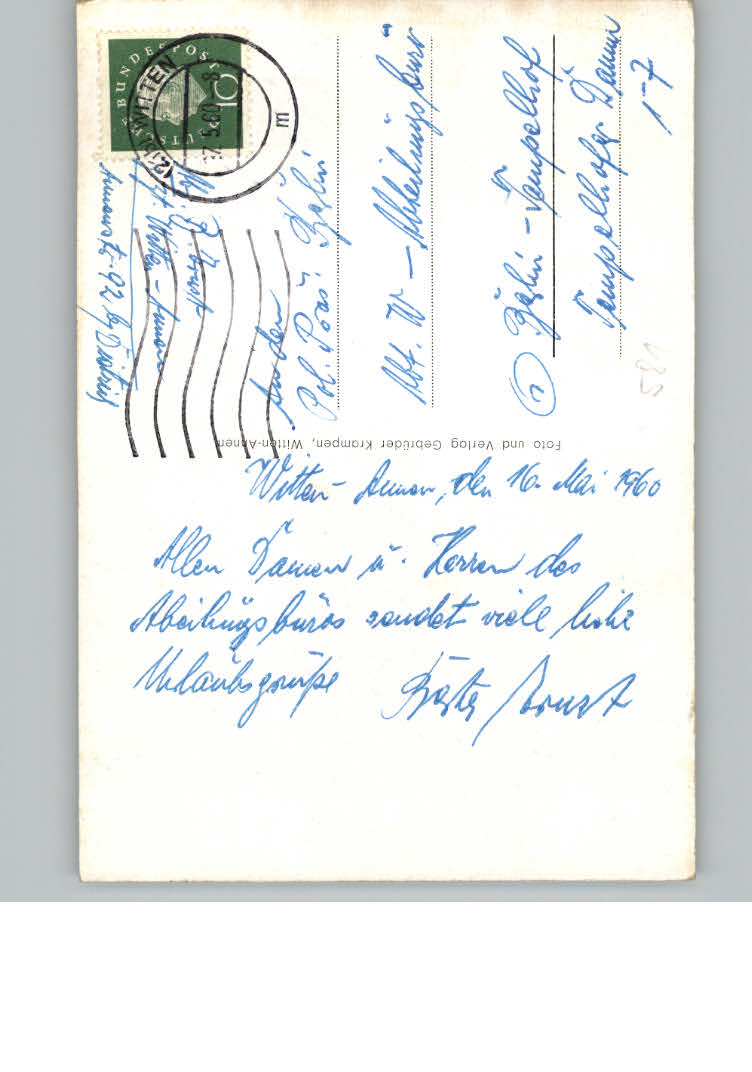 Witten-Annen, den 16. Mai 1960
Allen Damen u. Herren des
Abeilungsbüros sendet viele liebe
Urlaubsgrüße
Ernst
An den
Pol. Präs. Berlin
Abt. W – Abteilungsbüro
Berlin-Tempelhof
Tempelhofer Damm
1-7
Foto und Verlag Gebrüder Krampen, Witten-Annen
Ernst
Witten-Annen
Annenstr. 92 b/
DEUTSCHE BUNDESPOST
10
WITTEN
17.5.60 -8
m
521